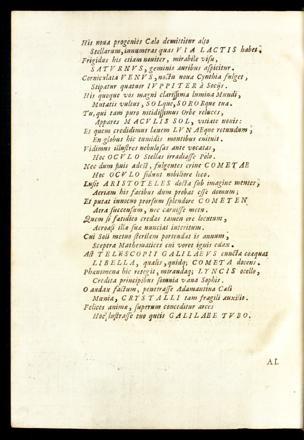 His noua progenies Cælo demittitur alto
Stellarum, innumeras quas VIA LACTIS habet,
Frigidus his etiam nouiter, mirabile visu,
SATVRNVS, geminis auribus aspicitur.
Corniculata VENVS, noctu noua Cynthia fulget,
Stipatur quatuor IVPPITER à Socijs.
His quoque vos magni clarissima lumina Mundi,
Mutatis vultus, SOLque, SORORque tua.
Tu, qui tam puro nitidissimus Orbe reluces,
Appares MACVLIS SOL, vitiate nouis:
Et quem credidimus læuem LVNAEque rotundum,
En globus hic tumidis montibus extuit.
Vidimus illustres nebulosas ante vocatas,
Hoc OCVLO Stellas irradiasse Polo.
Nec dum fuit adest, fulgentes crine COMETAE
Hoc OCVLO fidunt nobiliore loco.
Lusit ARISTOTELES docta sub imagine mentes,
Aeriam his facibus dum probat esse domum;
Et putat innocuo prorsum splendere COMETEN
Aera succensum, nec caruisse metu.
Quem si fatidico credas tamen ore locutum,
Aeroasi illa sua nuncias interitum.
Cui Soli metus sterilem portendat is annum,
Scepera Mathematices cui voret ignis edax.
Ast TELESCOPII GALILAEVS cuncta coæquat
LIBELLA, qualis, quidq; COMETA docens.
Phænomena hic retegit, mirandaq; LYNCIS ocello,
Credita principibus somnia vana Sophis.
O audax factum, penetrasse Adamantina Cæli
Mœnia, CRYSTALLI tam fragili auxilio.
Felices animæ, superum conceditur arces
Hoc lustrasse tuo queis GALILAEE TVBO.
AL